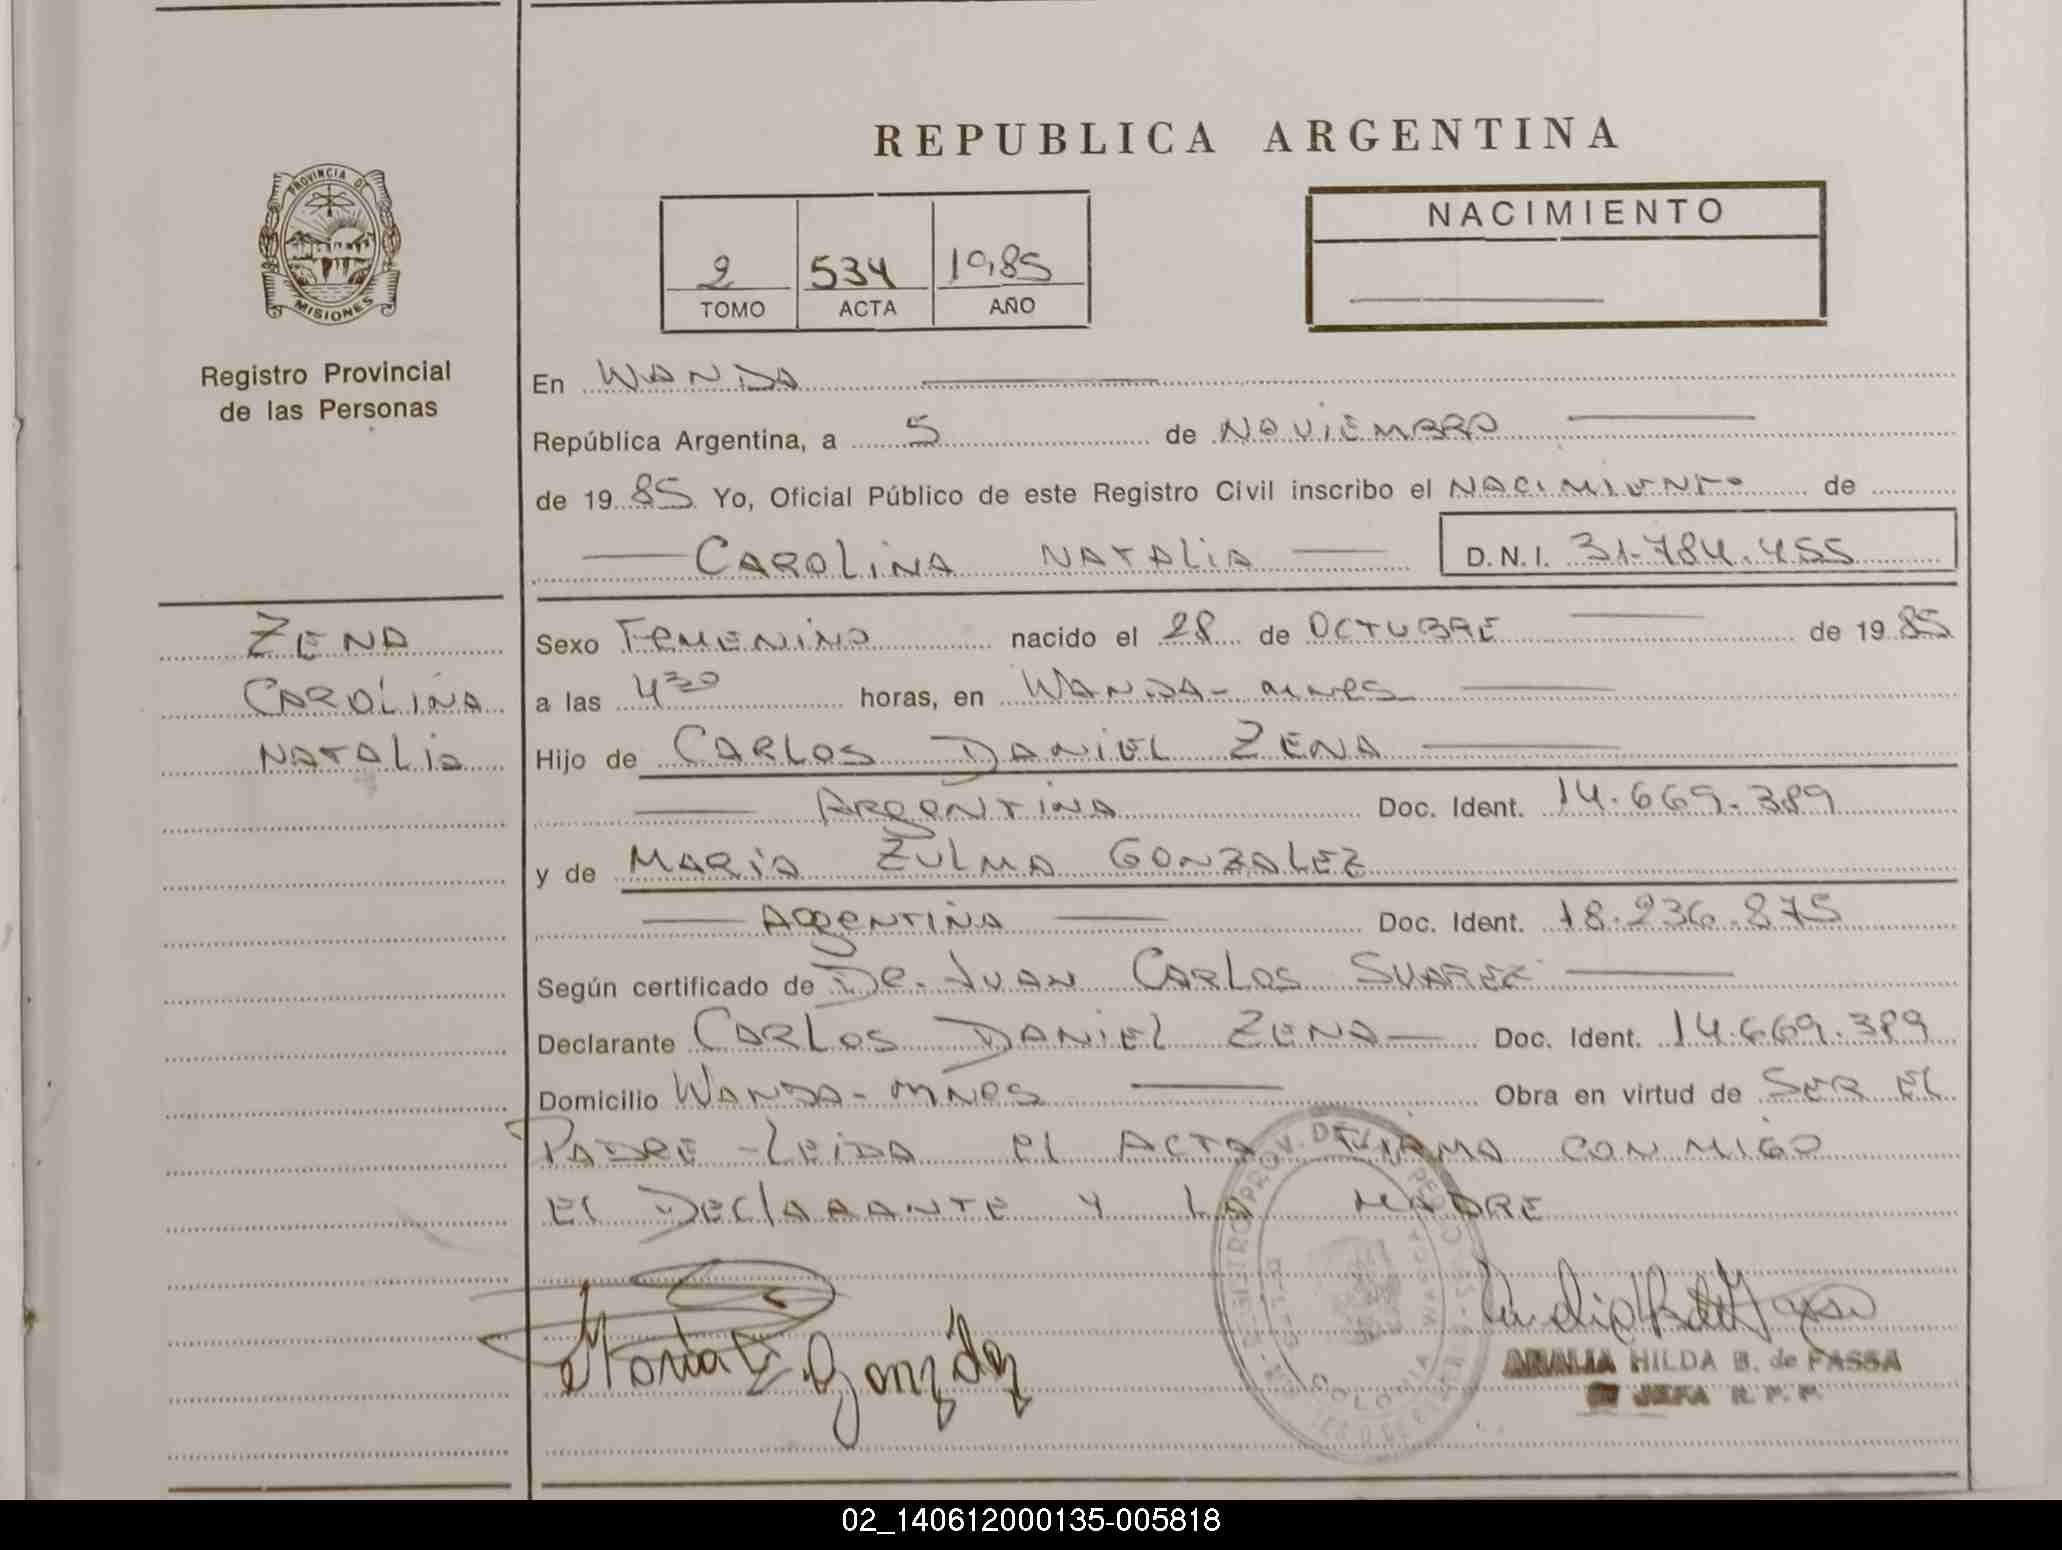 REPUBLICA ARGENTINA
PROVINCIA DE
MISIONES
Registro Provincial
de las Personas
2 534 1985
TOMO ACTA AÑO
NACIMIENTO
En WANDA
República Argentina, a 5 de NOVIEMBRE
de 19 85 Yo, Oficial Público de este Registro Civil inscribo el NACIMIENTO de
CAROLINA NATALIA D.N.I. 31.784.455
ZENA
CAROLINA
NATALIA
Sexo FEMENINO nacido el 28 de OCTUBRE de 19 85
a las 4 30 horas, en WANDA - MNES
Hijo de CARLOS DANIEL ZENA
ARGENTINA Doc. Ident. 14.669.389
y de MARIA ZULMA GONZALEZ
ARGENTINA Doc. Ident. 18.236.875
Según certificado de DR. JUAN CARLOS SUAREZ
Declarante CARLOS DANIEL ZENA Doc. Ident. 14.669.389
Domicilio WANDA - MNES Obra en virtud de SER EL
PADRE - LEIDA EL ACTA FIRMA CON MIGO
EL DECLARANTE Y LA MADRE
Maria Z. González
HILDA B. de FASSA
JEFA R. P. P.
COLONIA WANDA
02_140612000135-005818